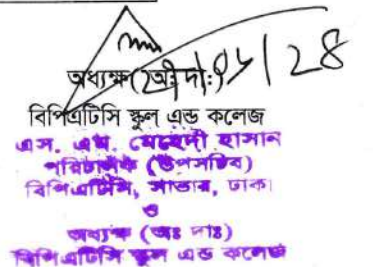 অধ্যক্ষ(অঃ দাঃ)
বিপিএটিসি স্কুল এন্ড কলেজ
এস. এম. মেহেদী হাসান
পরিচালক (উপসচিব)
বিপিএটিসি, সাভার, ঢাকা।
ও
অধ্যক্ষ (অঃ দাঃ)
বিপিএটিসি স্কুল এন্ড কলেজ